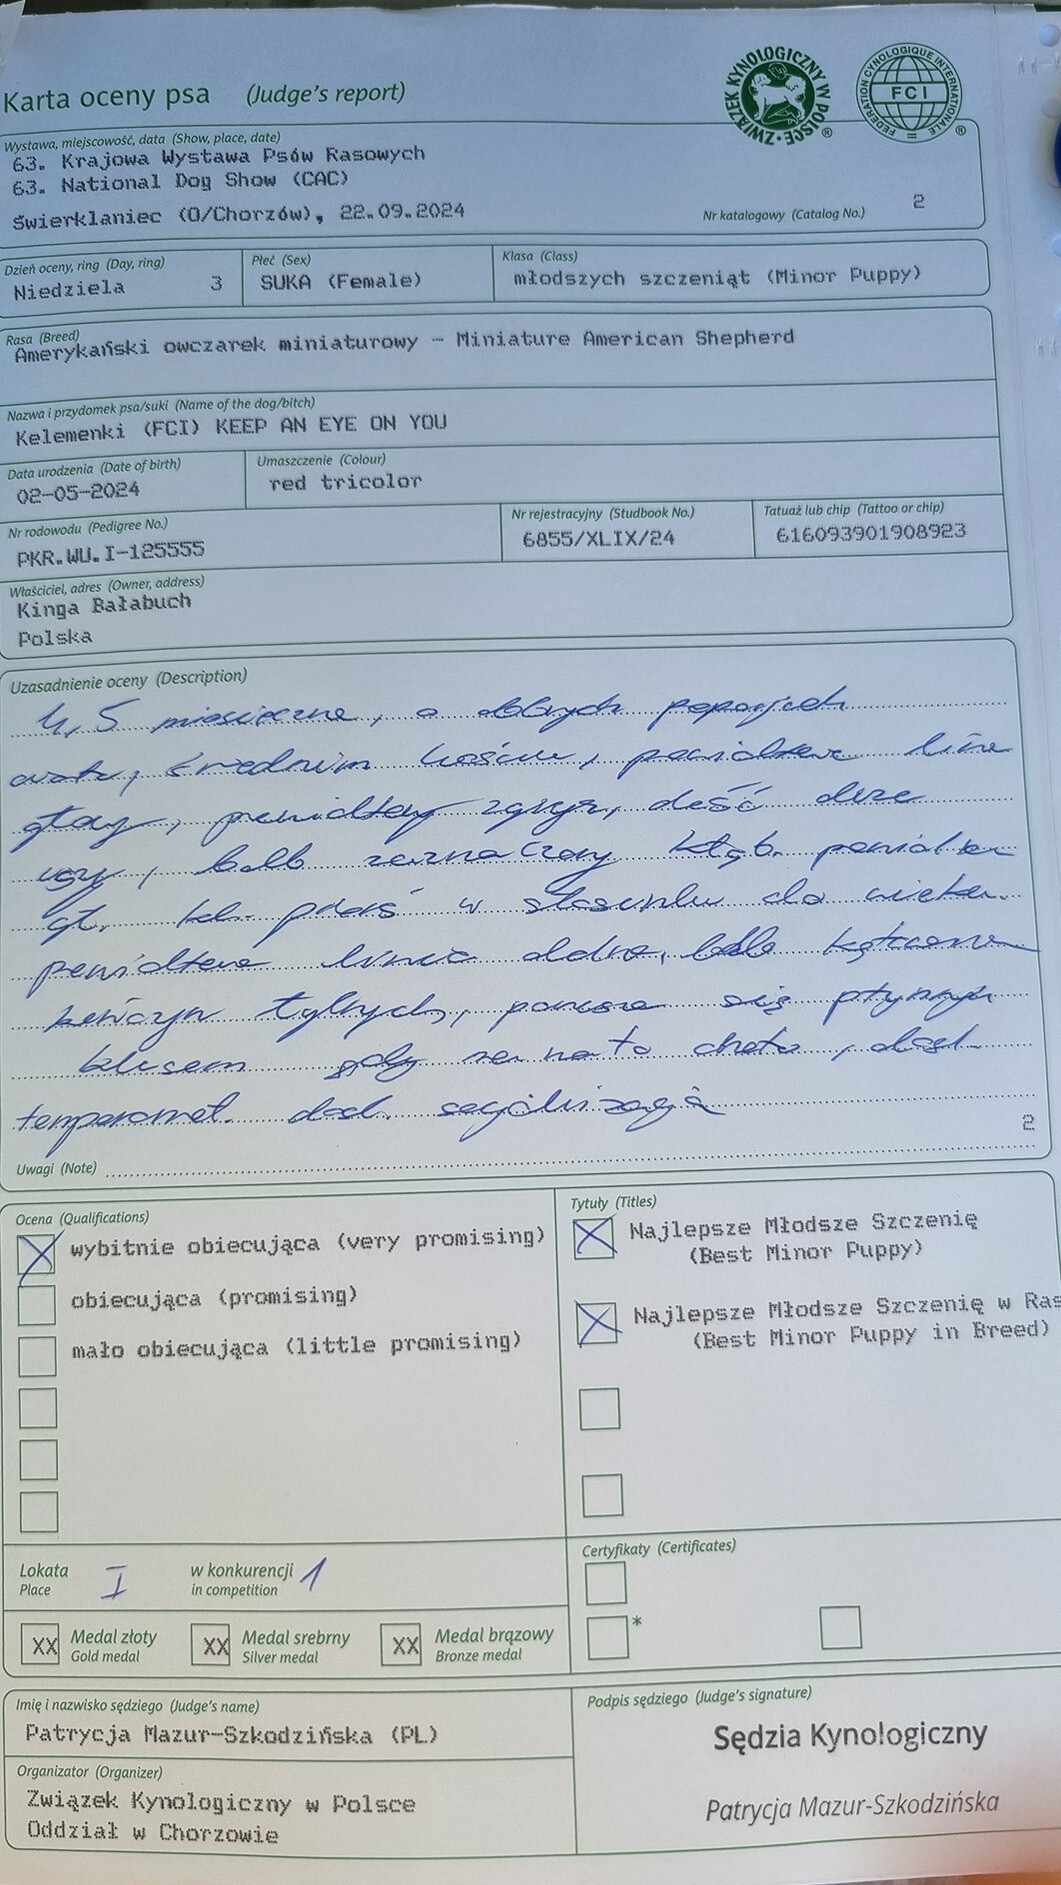 Karta oceny psa (Judge's report)
ZWIĄZEK KYNOLOGICZNY W POLSCE ®
FEDERATION CYNOLOGIQUE INTERNATIONALE FCI ®
Wystawa, miejscowość, data (Show, place, date)
63. Krajowa Wystawa Psów Rasowych
63. National Dog Show (CAC)
Świerklaniec (O/Chorzów), 22.09.2024
Nr katalogowy (Catalog No.) 2
Dzień oceny, ring (Day, ring) Płeć (Sex) Klasa (Class)
Niedziela 3 SUKA (Female) młodszych szczeniąt (Minor Puppy)
Rasa (Breed)
Amerykański owczarek miniaturowy - Miniature American Shepherd
Nazwa i przydomek psa/suki (Name of the dog/bitch)
Kelemenki (FCI) KEEP AN EYE ON YOU
Data urodzenia (Date of birth) Umaszczenie (Colour)
02-05-2024 red tricolor
Nr rodowodu (Pedigree No.) Nr rejestracyjny (Studbook No.) Tatuaż lub chip (Tattoo or chip)
PKR.WU.I-125555 6855/XLIX/24 616093901908923
Właściciel, adres (Owner, address)
Kinga Bałabuch
Polska
Uzasadnienie oceny (Description)
4,5 miesięczne, o dobrych proporcjach
średnim kośćcu, prawidłowe linie
głowy, prawidłowy zgryz, dość duże
uszy, kłąb
gł. kl. pierś w stosunku do wieku.
prawidłowa linia dolna, kątowanie
kończyn tylnych, porusza się płynnym
kłusem gdy ma na to ochotę, dosk.
temperament. dosk. socjalizacja
2
Uwagi (Note)
Ocena (Qualifications) Tytuły (Titles)
wybitnie obiecująca (very promising) Najlepsze Młodsze Szczenię
(Best Minor Puppy)
obiecująca (promising) Najlepsze Młodsze Szczenię w Ras
mało obiecująca (little promising) (Best Minor Puppy in Breed)
Certyfikaty (Certificates)
Lokata I w konkurencji 1
Place in competition
*
XX Medal złoty XX Medal srebrny XX Medal brązowy
Gold medal Silver medal Bronze medal
Imię i nazwisko sędziego (Judge's name) Podpis sędziego (Judge's signature)
Patrycja Mazur-Szkodzińska (PL) Sędzia Kynologiczny
Organizator (Organizer)
Związek Kynologiczny w Polsce Patrycja Mazur-Szkodzińska
Oddział w Chorzowie